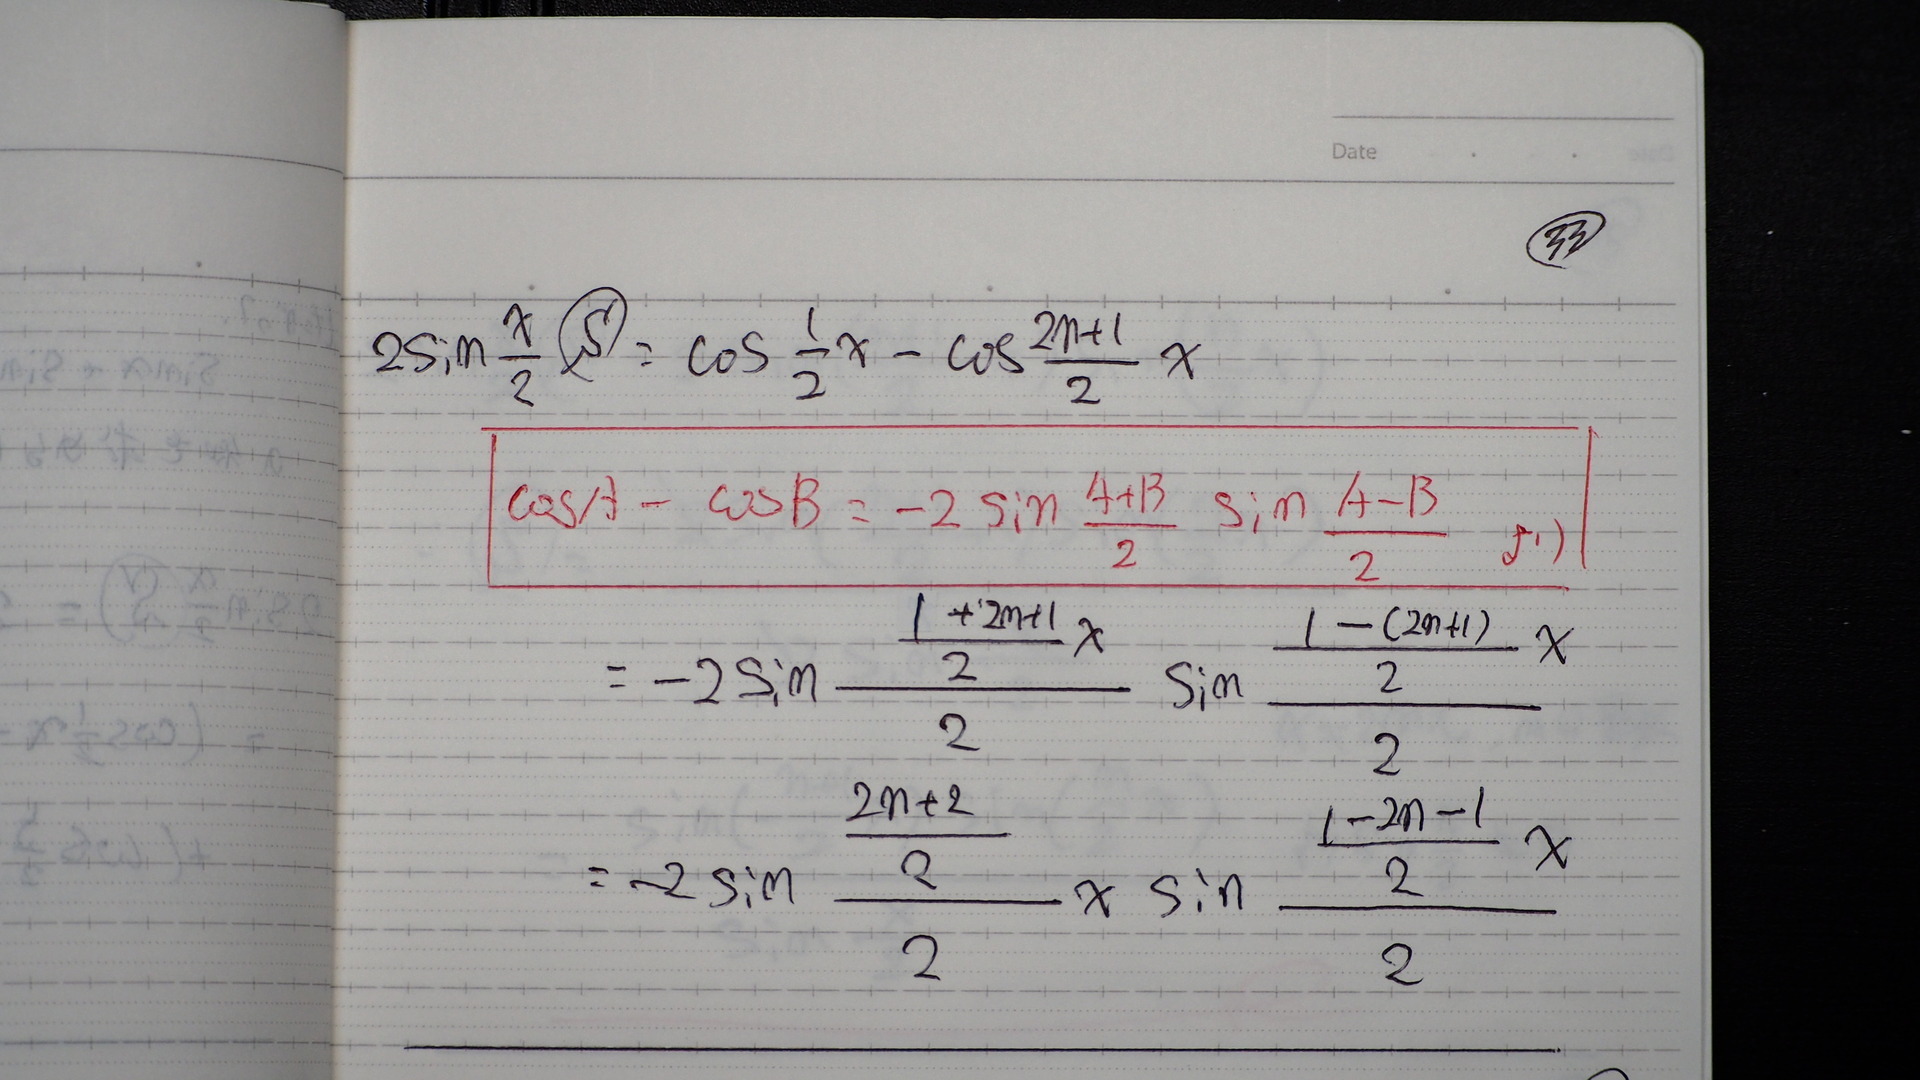 Date
33
2sin x/2 S = cos 1/2 x - cos (2n+1)/2 x
cosA - cosB = -2 sin (A+B)/2 sin (A-B)/2 より
= -2 sin ((1+2n+1)/2 x)/2 sin ((1-(2n+1))/2 x)/2
= -2 sin ((2n+2)/2)/2 x sin ((1-2n-1)/2 x)/2